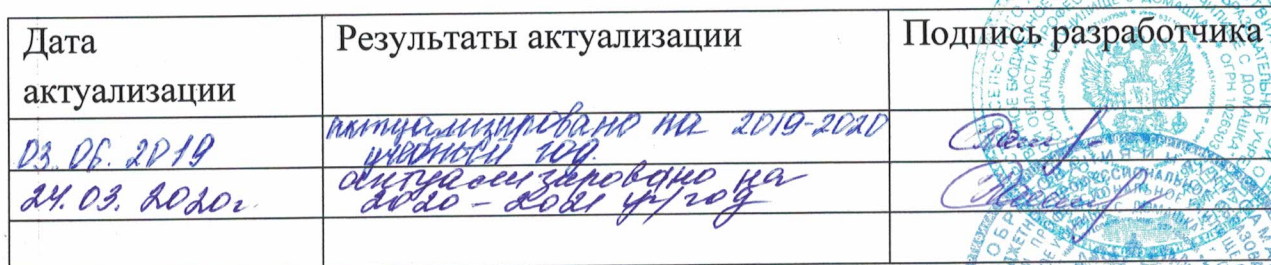 Дата
актуализации
Результаты актуализации
Подпись разработчика
03.06.2019
актуализировано на 2019-2020
учебный год.
24.03.2020г.
актуализировано на
2020-2021 уч/год